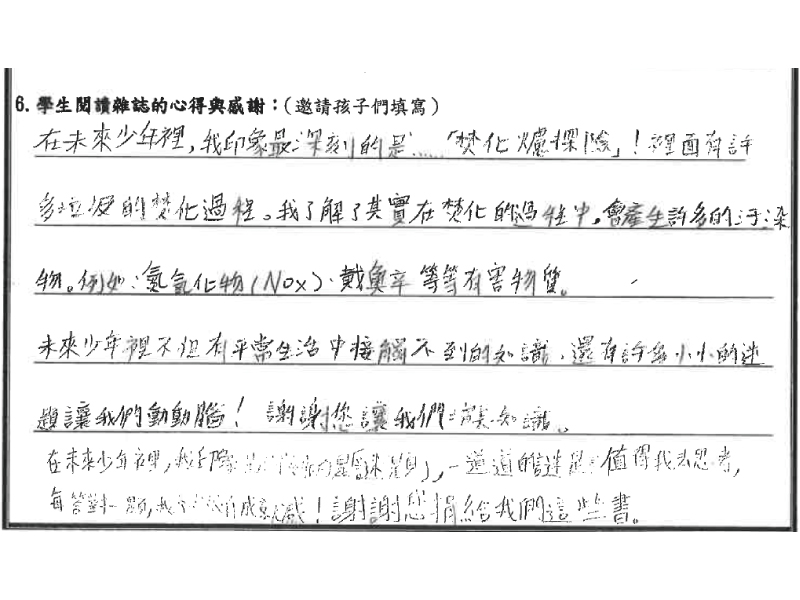 6. 學生閱讀雜誌的心得與感謝：(邀請孩子們填寫)
在未來少年裡，我印象最深刻的是……「焚化爐探險」！裡面有許
多垃圾的焚化過程。我了解了其實在焚化的過程中，會產生許多的汙染
物。例如：氮氧化物(NOx)、戴奧辛等等有害物質。
未來少年裡不但有平常生活中接觸不到的知識，還有許多小小的迷
題讓我們動動腦！謝謝您讓我們 知識。
在未來少年裡，我 題」，一道道的謎 值得我去思考，
每答對一題，我 有成就感！謝謝您捐給我們這些書。